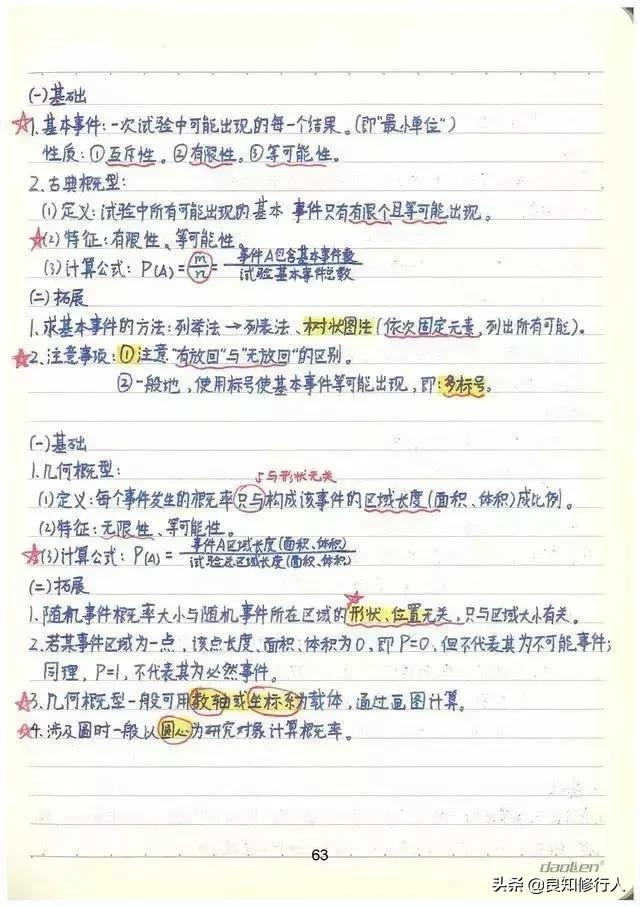 (一)基础
1.基本事件:一次试验中可能出现的每一个结果。(即"最小单位")
性质:①互斥性。②有限性。③等可能性。
2.古典概型:
(1)定义:试验中所有可能出现的基本事件只有有限个且等可能出现。
(2)特征:有限性、等可能性。
(3)计算公式:P(A)=m/n=事件A包含基本事件数/试验基本事件总数
(二)拓展
1.求基本事件的方法:列举法→列表法、树状图法(依次固定元素,列出所有可能)。
2.注意事项:①注意"有放回"与"无放回"的区别。
②一般地,使用标号使基本事件等可能出现,即:多标号。
(一)基础
1.几何概型:
与形状无关
(1)定义:每个事件发生的概率只与构成该事件的区域长度(面积、体积)成比例。
(2)特征:无限性、等可能性。
(3)计算公式:P(A)=事件A区域长度(面积、体积)/试验总区域长度(面积、体积)
(二)拓展
1.随机事件概率大小与随机事件所在区域的形状、位置无关,只与区域大小有关。
2.若某事件区域为一点,该点长度、面积、体积为0,即P=0,但不代表其为不可能事件;
同理,P=1,不代表其为必然事件。
3.几何概型一般可用数轴或坐标系为载体,通过画图计算。
4.涉及圆时一般以圆心为研究对象计算概率。
63
daolen
头条 @良知修行人